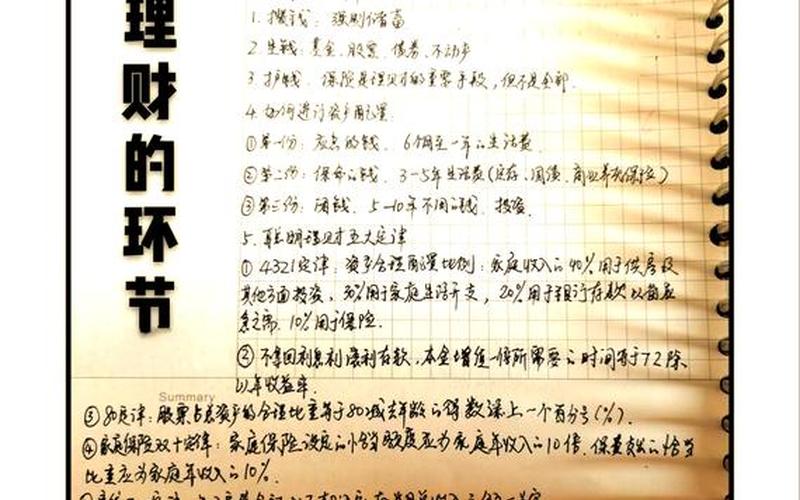 理财的环节
1. 攒钱：强制储蓄
2. 生钱：基金、股票、债券、不动产
3. 护钱：保险是理财的重要手段，但不是全部.
4. 如何进行资产配置：
①第一份：应急的钱、6个月至一年的生活费.
②第二份：保命的钱、3-5年生活费(定存、国债、商业养老保险)
③第三份：闲钱、5-10年不用的钱、投资.
5. 聪明理财五大定律
① 4321定律：资产合理配置比例：家庭收入的40%用于供房及
其他方面投资，30%用于家庭生活开支，20%用于银行存款以备应
急之需. 10%用于保险.
② 不拿回利息利滚利存款，本金增值一倍所需要的时间等于72除
以年收益率.
Summary
③ 80定律：股票占总资产的合理比重等于80减去年龄的得数添上一个百分号(%).
④家庭保险双十定律：家庭保险设定的恰当额度应为家庭年收入的10倍. 保费支出的恰当
比重应为家庭年收入的10%.